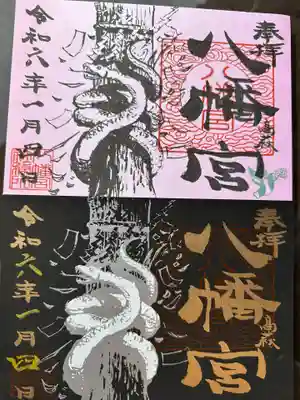 奉拝
八幡宮
高嶽
令和六年一月四日
奉拝
八幡宮
高嶽
令和六年一月四日